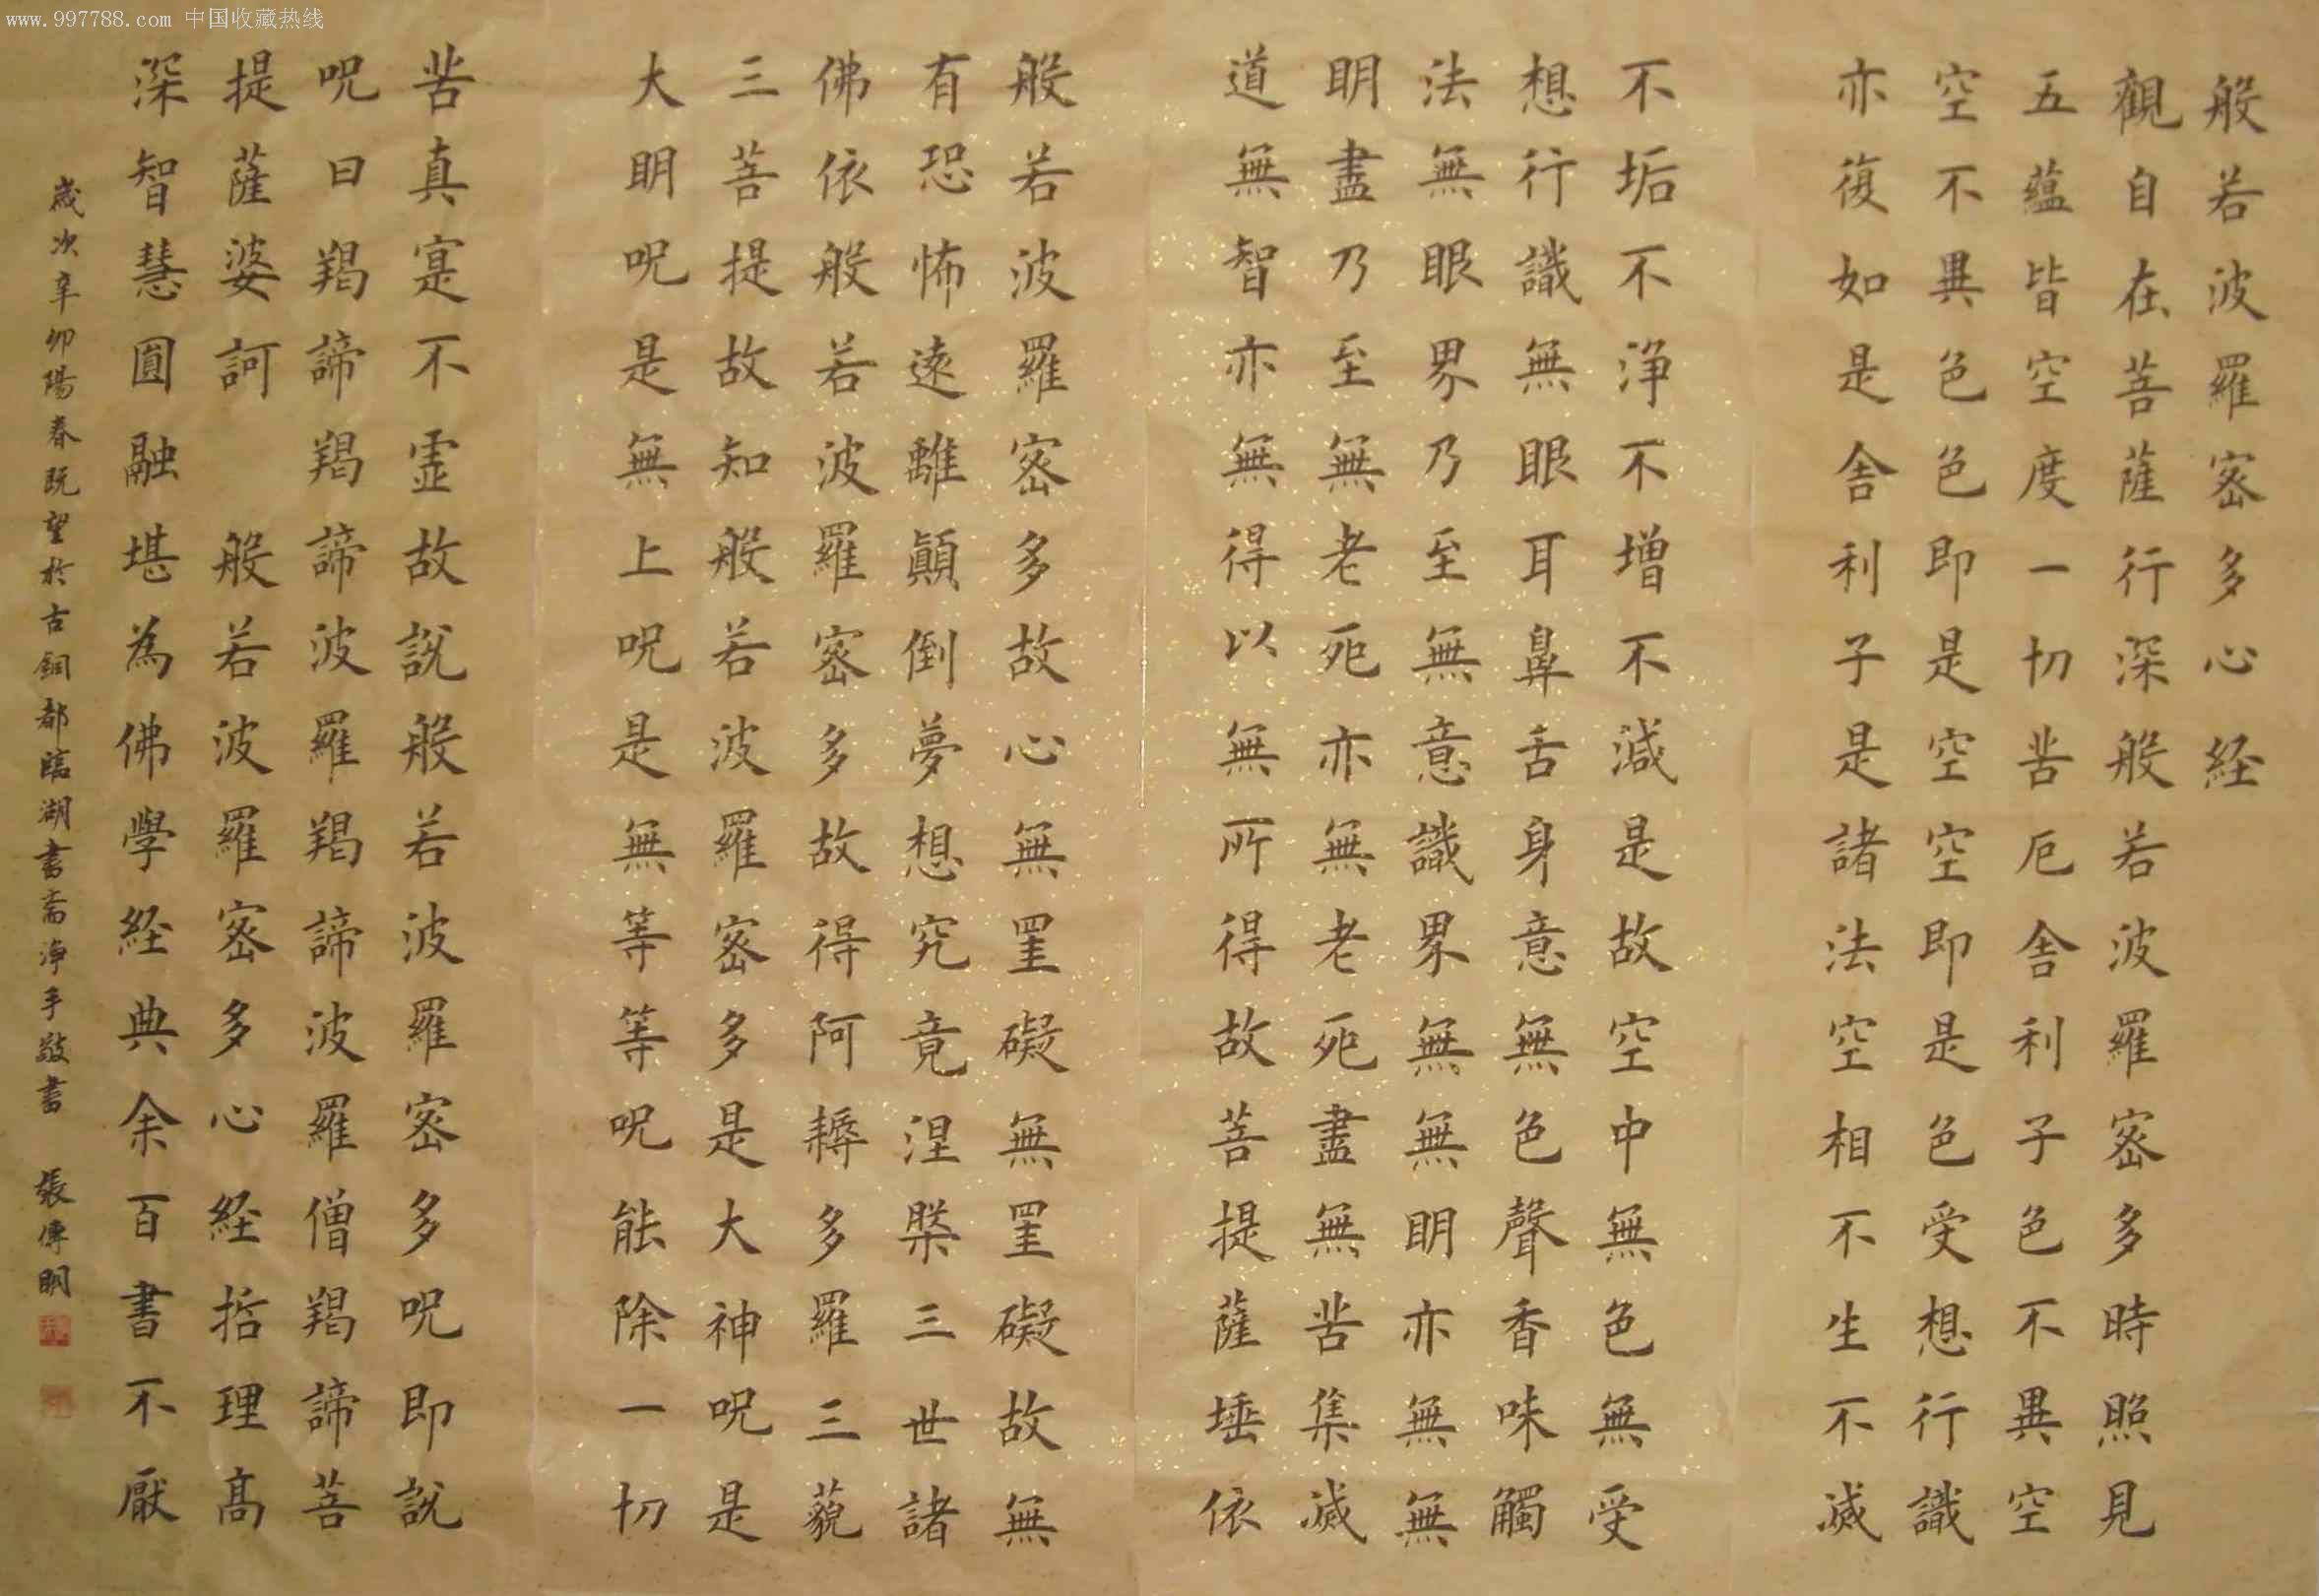 www.997788.com 中国收藏热线
般若波羅密多心経
觀自在菩薩行深般若波羅密多時照見
五蘊皆空度一切苦厄舍利子色不異空
空不異色色即是空空即是色受想行識
亦復如是舍利子是諸法空相不生不滅
不垢不淨不增不減是故空中無色無受
想行識無眼耳鼻舌身意無色聲香味觸
法無眼界乃至無意識界無無明亦無無
明盡乃至無老死亦無老死盡無苦集滅
道無智亦無得以無所得故菩提薩埵依
般若波羅密多故心無罣礙無罣礙故無
有恐怖遠離顛倒夢想究竟涅槃三世諸
佛依般若波羅密多故得阿耨多羅三藐
三菩提故知般若波羅密多是大神呪是
大明呪是無上呪是無等等呪能除一切
苦真寔不虛故説般若波羅密多呪即説
呪曰羯諦羯諦波羅羯諦波羅僧羯諦菩
提薩婆訶 般若波羅密多心経哲理高
深智慧圓融堪為佛學経典余百書不厭
歲次辛卯陽春既望於古銅都臨湖書斋淨手敬書 張傳明